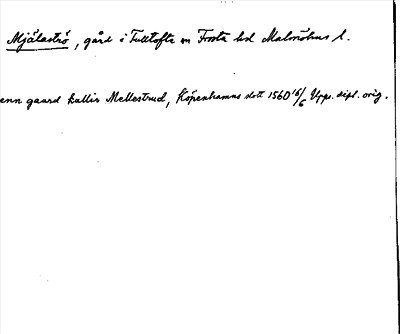 Mjälaströ, gård i Tulltofta sn Frosta hd Malmöhus l.
enn gaard kallis Mellestrud, Köpenhamns slott 1560 16/6 Upps. dipl. orig.